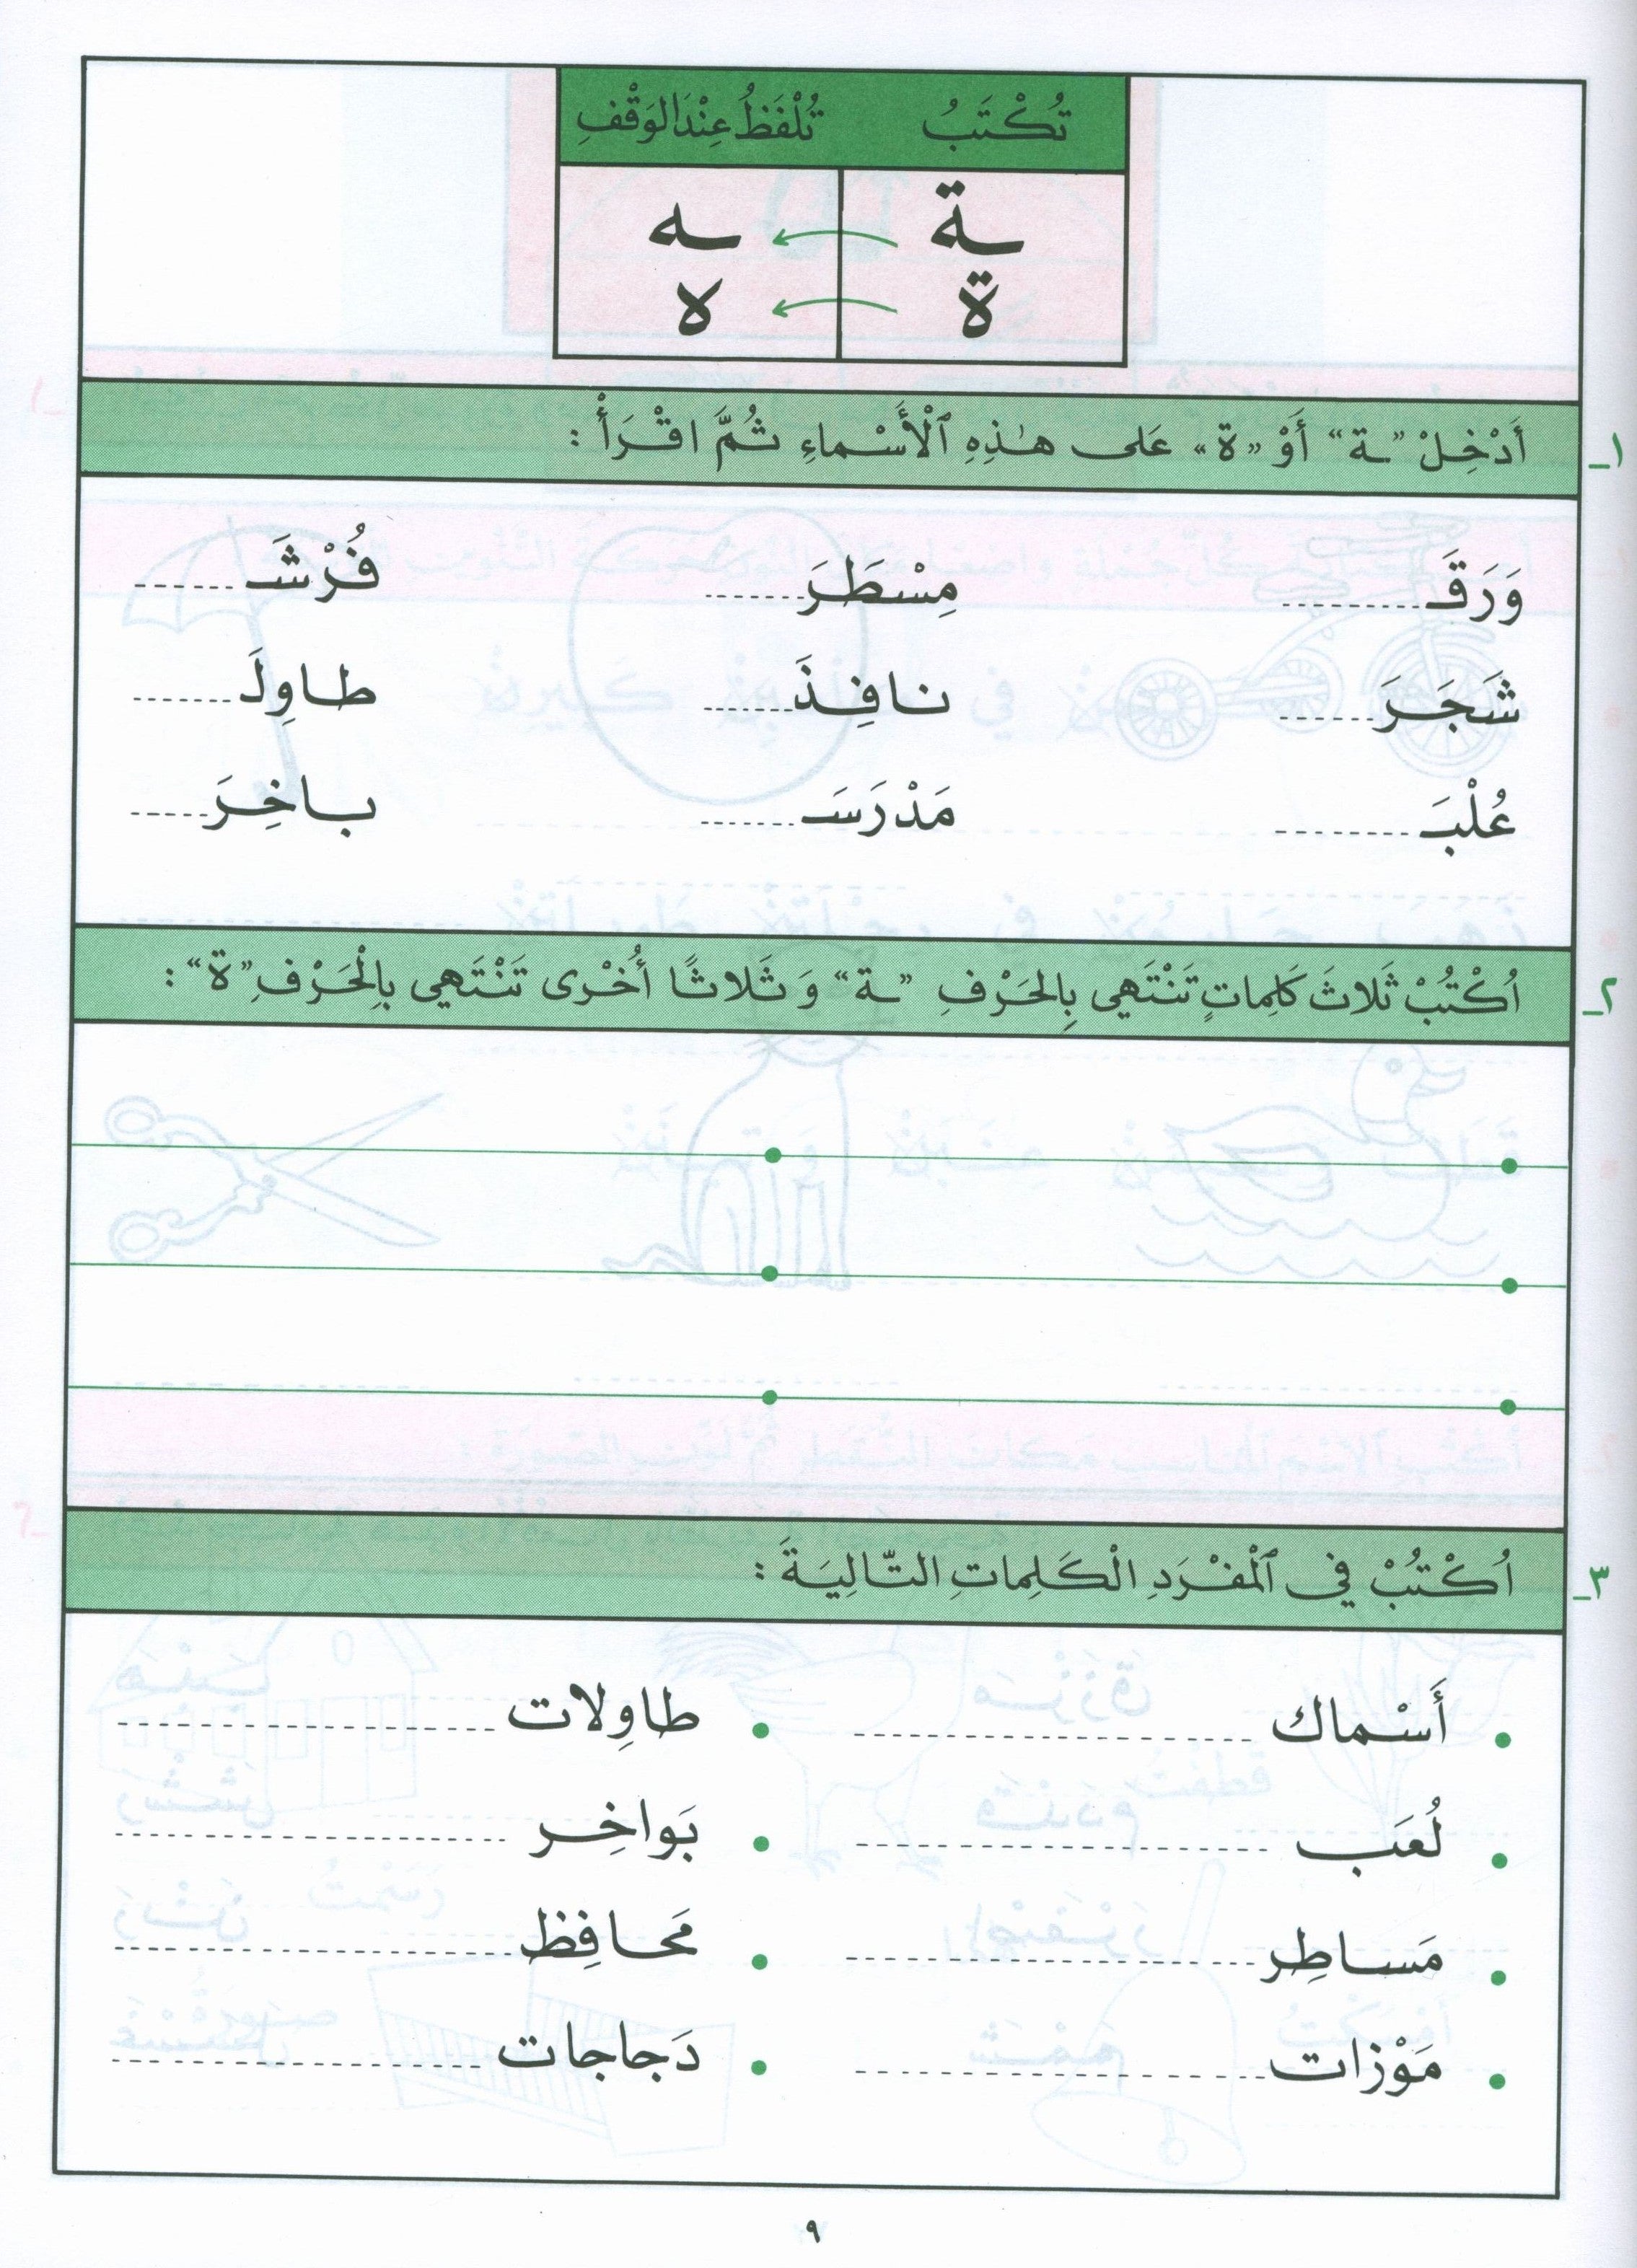 تُكْتَبُ تُلْفَظُ عِنْدَ الوَقْفِ
ـة ـه
ة ه
١ـ أَدْخِلْ "ـة" أَوْ "ة" عَلى هٰذِهِ ٱلْأَسْماءِ ثُمَّ اقْرَأْ :
وَرَقَـ......... مِسْطَرَ....... فُرْشَـ.......
شَجَرَ...... نافِذَ....... طاوِلَـ.......
عُلْبَـ......... مَدْرَسَـ...... باخِرَ.....
٢ـ اُكْتُبْ ثَلاثَ كَلِماتٍ تَنْتَهي بِالحَرْفِ "ـة" وَ ثَلاثًا أُخْرى تَنْتَهي بِالْحَرْفِ "ة" :
٣ـ اُكْتُبْ في ٱلْمُفْرَدِ الْكَلِماتِ التّالِيَةَ :
• أَسْماك .......................... • طاوِلات ..........................
• لُعَب .......................... • بَواخِر ..........................
• مَساطِر .......................... • مَحافِظ ..........................
• مَوْزات .......................... • دَجاجات ..........................
٩